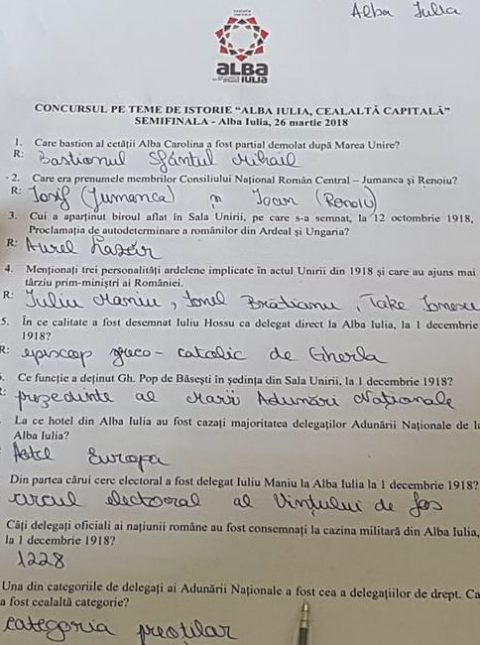 Alba Iulia
ALBA
IULIA
CONCURSUL PE TEME DE ISTORIE "ALBA IULIA, CEALALTĂ CAPITALĂ"
SEMIFINALA - Alba Iulia, 26 martie 2018
1. Care bastion al cetății Alba Carolina a fost parțial demolat după Marea Unire?
R: Bastionul Sfântul Mihail
2. Care erau prenumele membrilor Consiliului Național Român Central – Jumanca și Renoiu?
R: Iosif (Jumanca) și Ioan (Renoiu)
3. Cui a aparținut biroul aflat în Sala Unirii, pe care s-a semnat, la 12 octombrie 1918,
Proclamația de autodeterminare a românilor din Ardeal și Ungaria?
R: Aurel Lazăr
4. Menționați trei personalități ardelene implicate în actul Unirii din 1918 și care au ajuns mai
târziu prim-miniștri ai României.
R: Iuliu Maniu, Ionel Brătianu, Take Ionescu
5. În ce calitate a fost desemnat Iuliu Hossu ca delegat direct la Alba Iulia, la 1 decembrie
1918?
R: episcop greco-catolic de Gherla
Ce funcție a deținut Gh. Pop de Băsești în ședința din Sala Unirii, la 1 decembrie 1918?
președinte al Marii Adunări Naționale
La ce hotel din Alba Iulia au fost cazați majoritatea delegaților Adunării Naționale de la
Alba Iulia?
Hotel Europa
Din partea cărui cerc electoral a fost delegat Iuliu Maniu la Alba Iulia la 1 decembrie 1918?
cercul electoral al Vințului de Jos
Câți delegați oficiali ai națiunii române au fost consemnați la cazina militară din Alba Iulia,
la 1 decembrie 1918?
1228
Una din categoriile de delegați ai Adunării Naționale a fost cea a delegaților de drept. Ca
a fost cealaltă categorie?
categoria preoților